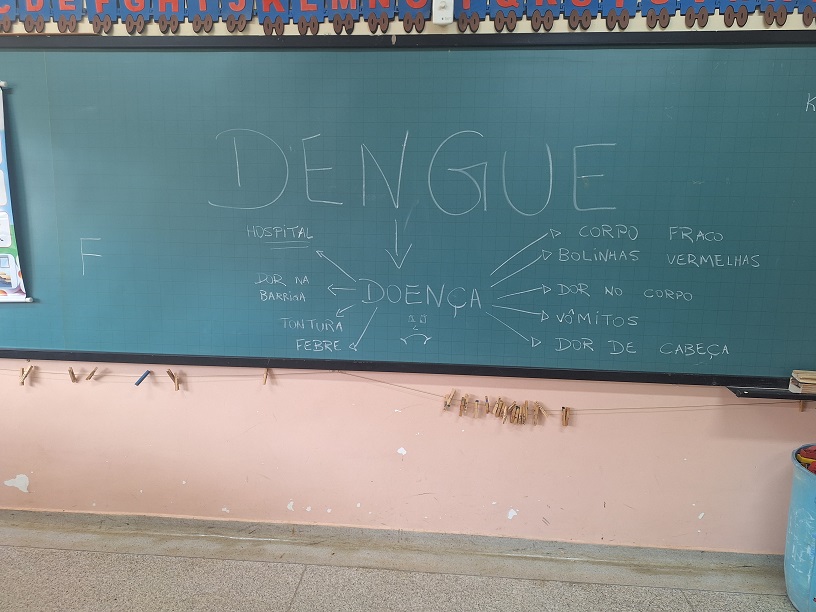 C D E F G H I J K L M N O Q R S T U
K
DENGUE
F
HOSPITAL
DOR NA
BARRIGA
TONTURA
FEBRE
DOENÇA
CORPO FRACO
BOLINHAS VERMELHAS
DOR NO CORPO
VÔMITOS
DOR DE CABEÇA